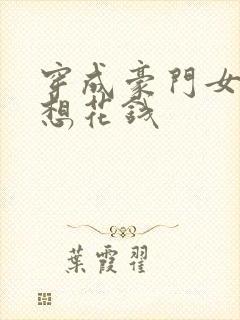 穿成豪門女
想花錢
葉霞翟